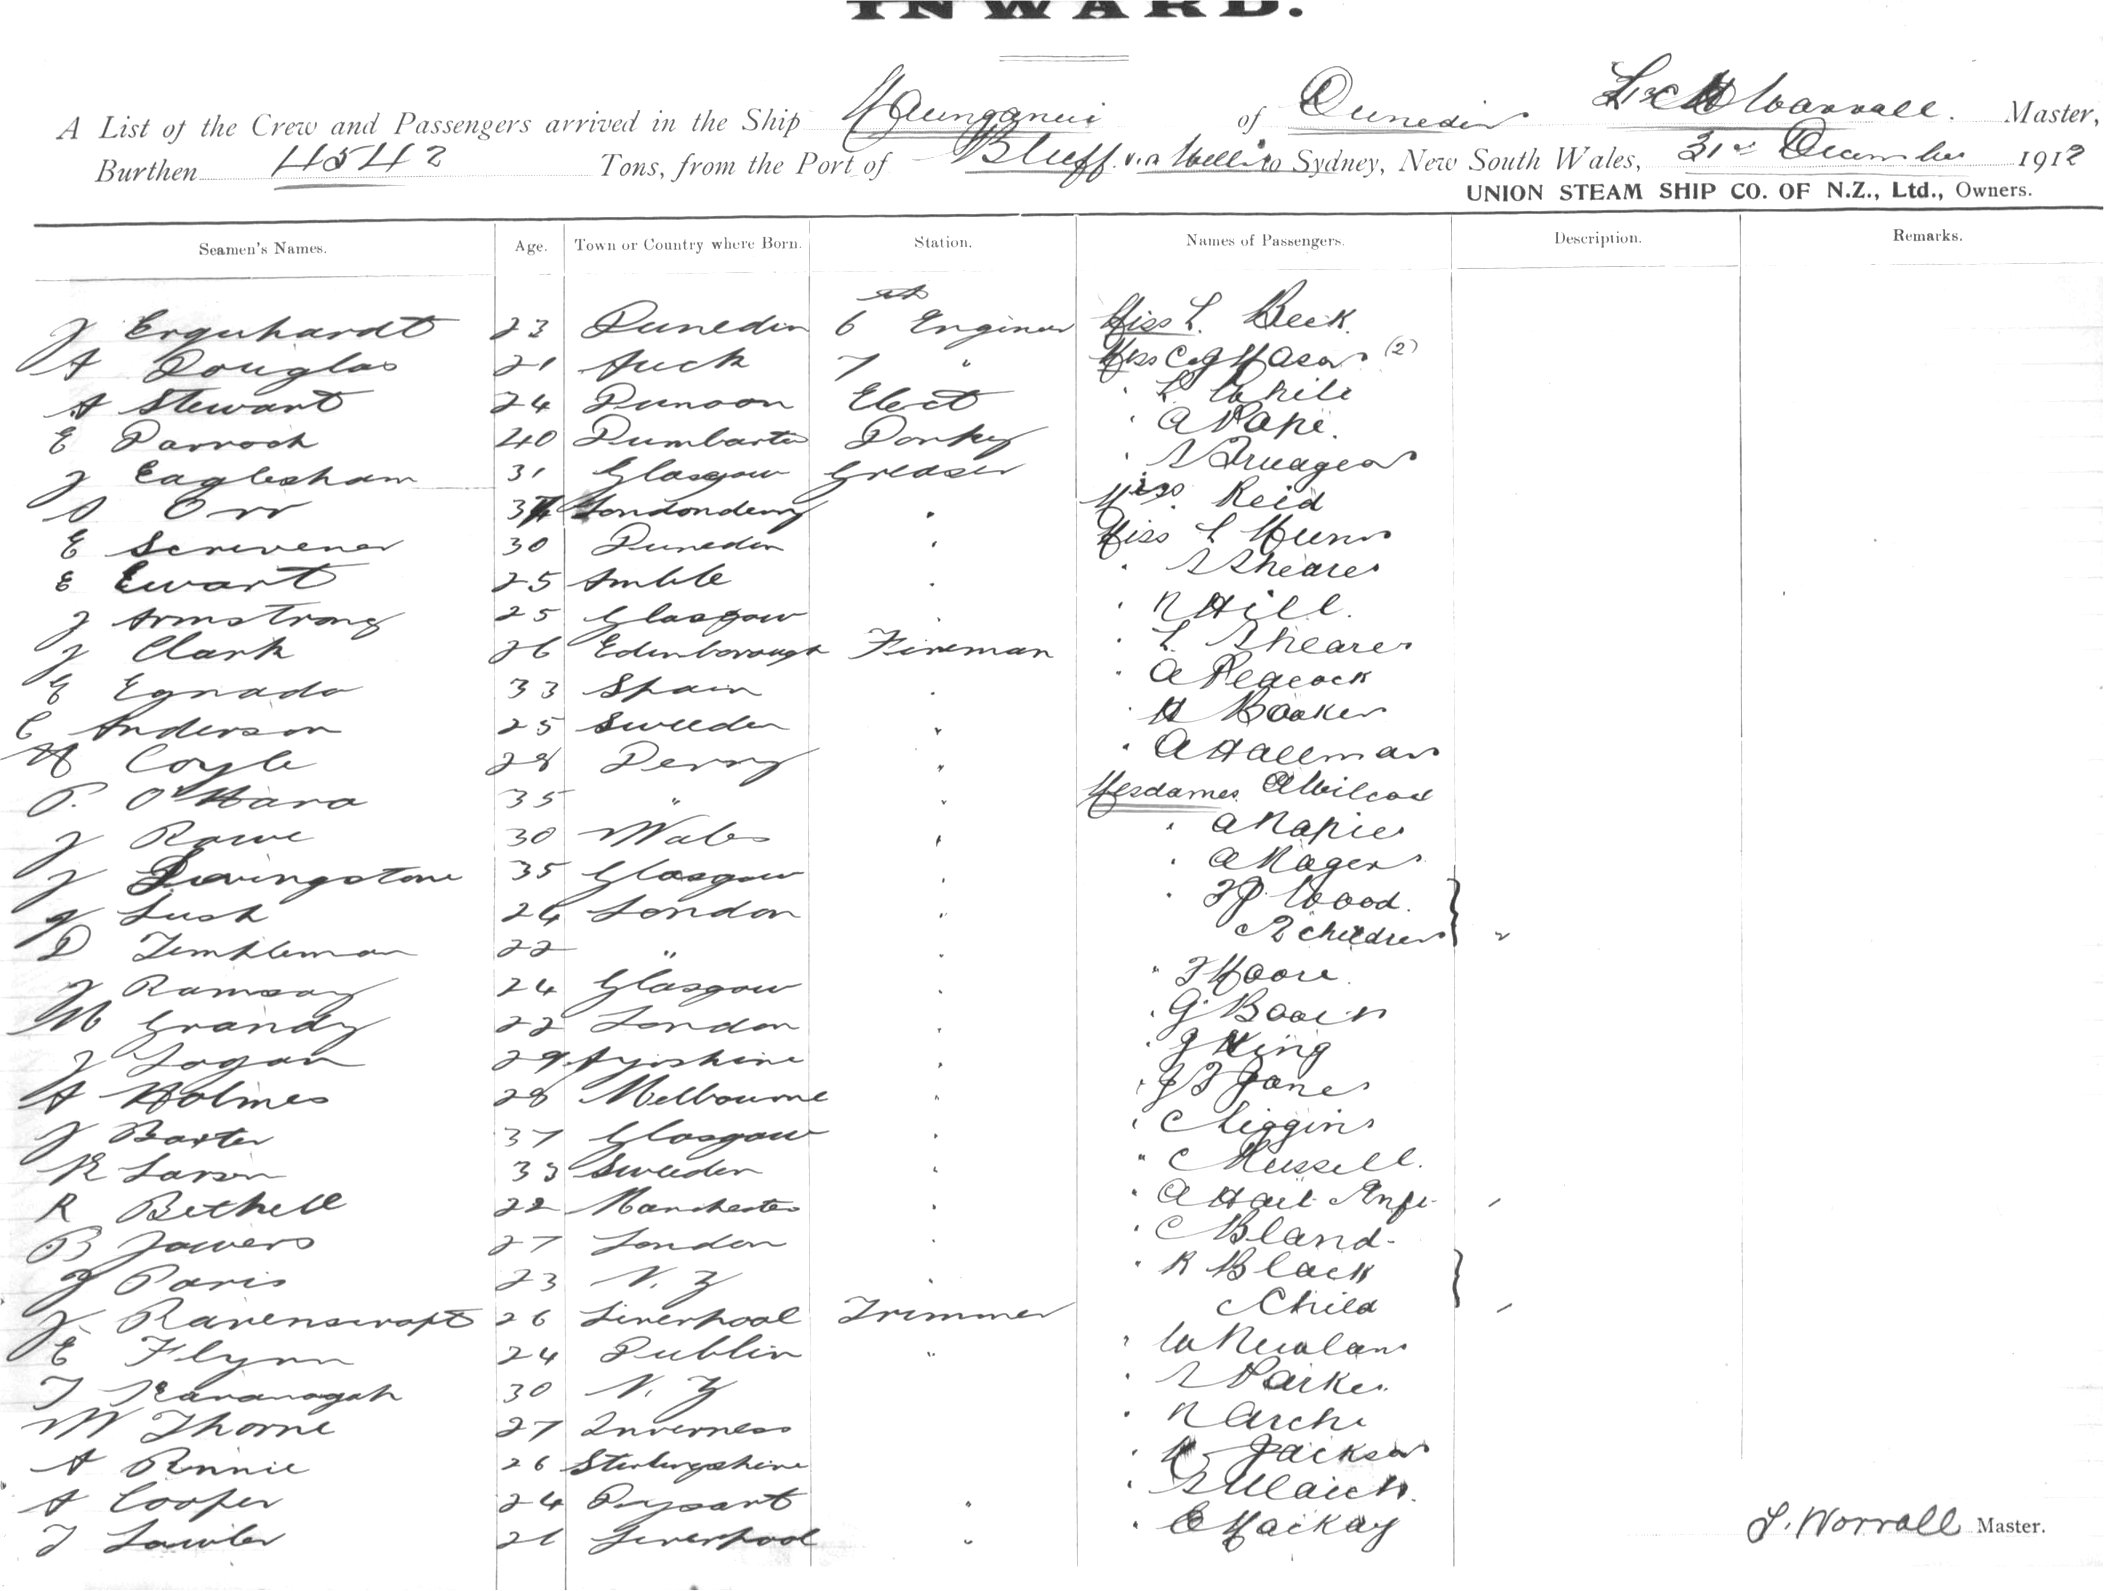 INWARD.
A List of the Crew and Passengers arrived in the Ship Maunganui of Dunedin Worrall. Master,
Burthen 4542 Tons, from the Port of Bluff via Well. to Sydney, New South Wales, 31st December 1912
UNION STEAM SHIP CO. OF N.Z., Ltd., Owners.
Seamen's Names. Age. Town or Country where Born. Station. Names of Passengers. Description. Remarks.
J Erquhardt 23 Dunedin 6 Engineer Miss L. Beck.
A Douglas 21 Auck 7 " Miss C & J Mason (2)
A Stewart 24 Dunoon Elect " L White
E Darroch 40 Dumbarton Donkey " A Pope.
J Eaglesham 31 Glasgow Greaser "
S Orr Londonderry " Miss. Reid
E Scrivener 30 Dunedin " Miss L Munro
E Ewart 25 Amble " " S Shearer
J Armstrong 25 Glasgow " " N Hill.
J Clark 26 Edenborough Fireman " L. Shearer
E Egnado 33 Spain " " A Peacock
C Anderson 25 Sweeden " " H Booker
H Coyle 28 Derry " " A Hallman
P. O'Hara 35 " " Mesdames A Wilcox
J Rowe 30 Wales " " A Napier
J Livingstone 35 Glasgow " " A Nagers
J Lush 24 London " " F P. Wood.
D Templeman 22 " " 2 children
J Ramsay 24 Glasgow " " F Moore.
M Grandy 22 London " " G
J Logan 29 Ayrshire " " J King
A Holmes 28 Melbourne " " J F Jones
J Baxter 37 Glasgow " " C
R Larsen 33 Sweeden " " C Russell.
R Bethell 22 Manchester " " A Hall Inft.
B Jowers 27 London " " C Bland
J Paris 23 N. Z " " R Black
J Ravenscroft 26 Liverpool Trimmer Child
E Flynn 24 Dublin " " W Newlans
T Kavanagah 30 N. Z " S Parker
W Thorne 27 Inverness " N Archer
A Rennie 26 Sterlingshire " Jackson
A Cooper 24 Dysart " "
T Lawler 26 Liverpool " " E Mackay
L. Worrall Master.